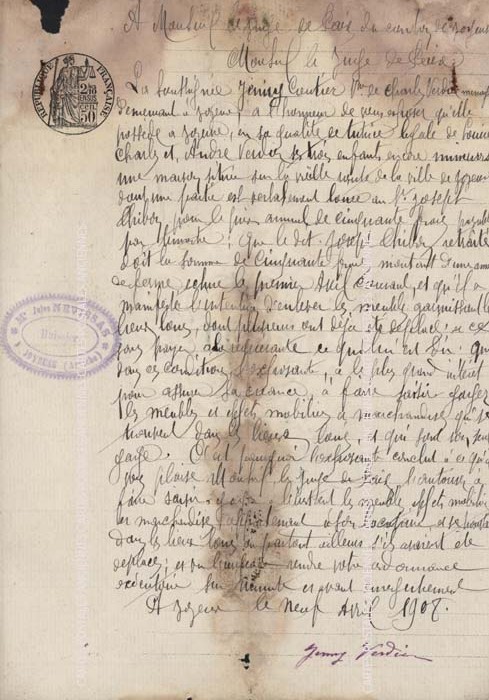 A Monsieur le Juge de Paix du canton de Joyeuse
Monsieur le Juge de Paix
La soussignée Jenny Coutier Vve de Charles Verdier
demeurant à Joyeuse, a l'honneur de vous exposer qu'elle
possède à Joyeuse, en sa qualité de tutrice légale de
Charles et André Verdier ses enfants encore mineurs
une maison située sur la vieille route de la ville de Joyeuse
dont une partie est verbalement louée au Sr Joseph
pour le prix annuel de cinquante francs payable
par trimestre; Que le dit Joseph
doit la somme de cinquante francs montant d'une
de ferme échue le premier Avril courant, et qu'il a
manifesté l'intention d'enlever les meubles garnissant les
lieux loués, dont plusieurs ont déjà été
sans payer à la requérante ce qui lui est dû; Que
dans ces conditions l'exposante, a le plus grand intérêt
pour assurer sa créance, à faire saisir gager
les meubles et effets mobiliers et marchandises qui se
trouvent dans les lieux loués, et qui sont son seul
gage. C'est pourquoi l'exposante conclut à ce qu'il
vous plaise Monsieur le Juge de Paix l'autoriser à
faire saisir-gager les meubles, effets mobiliers
et marchandises
dans les lieux loués ou partout ailleurs s'ils avaient été
déplacés; et rendre votre ordonnance
exécutoire sur minute et avant enregistrement
A Joyeuse le neuf Avril 1907.
Jenny Verdier
RÉPUBLIQUE FRANÇAISE
50
Me Jules
Huissier
A JOYEUSE (Ardèche)